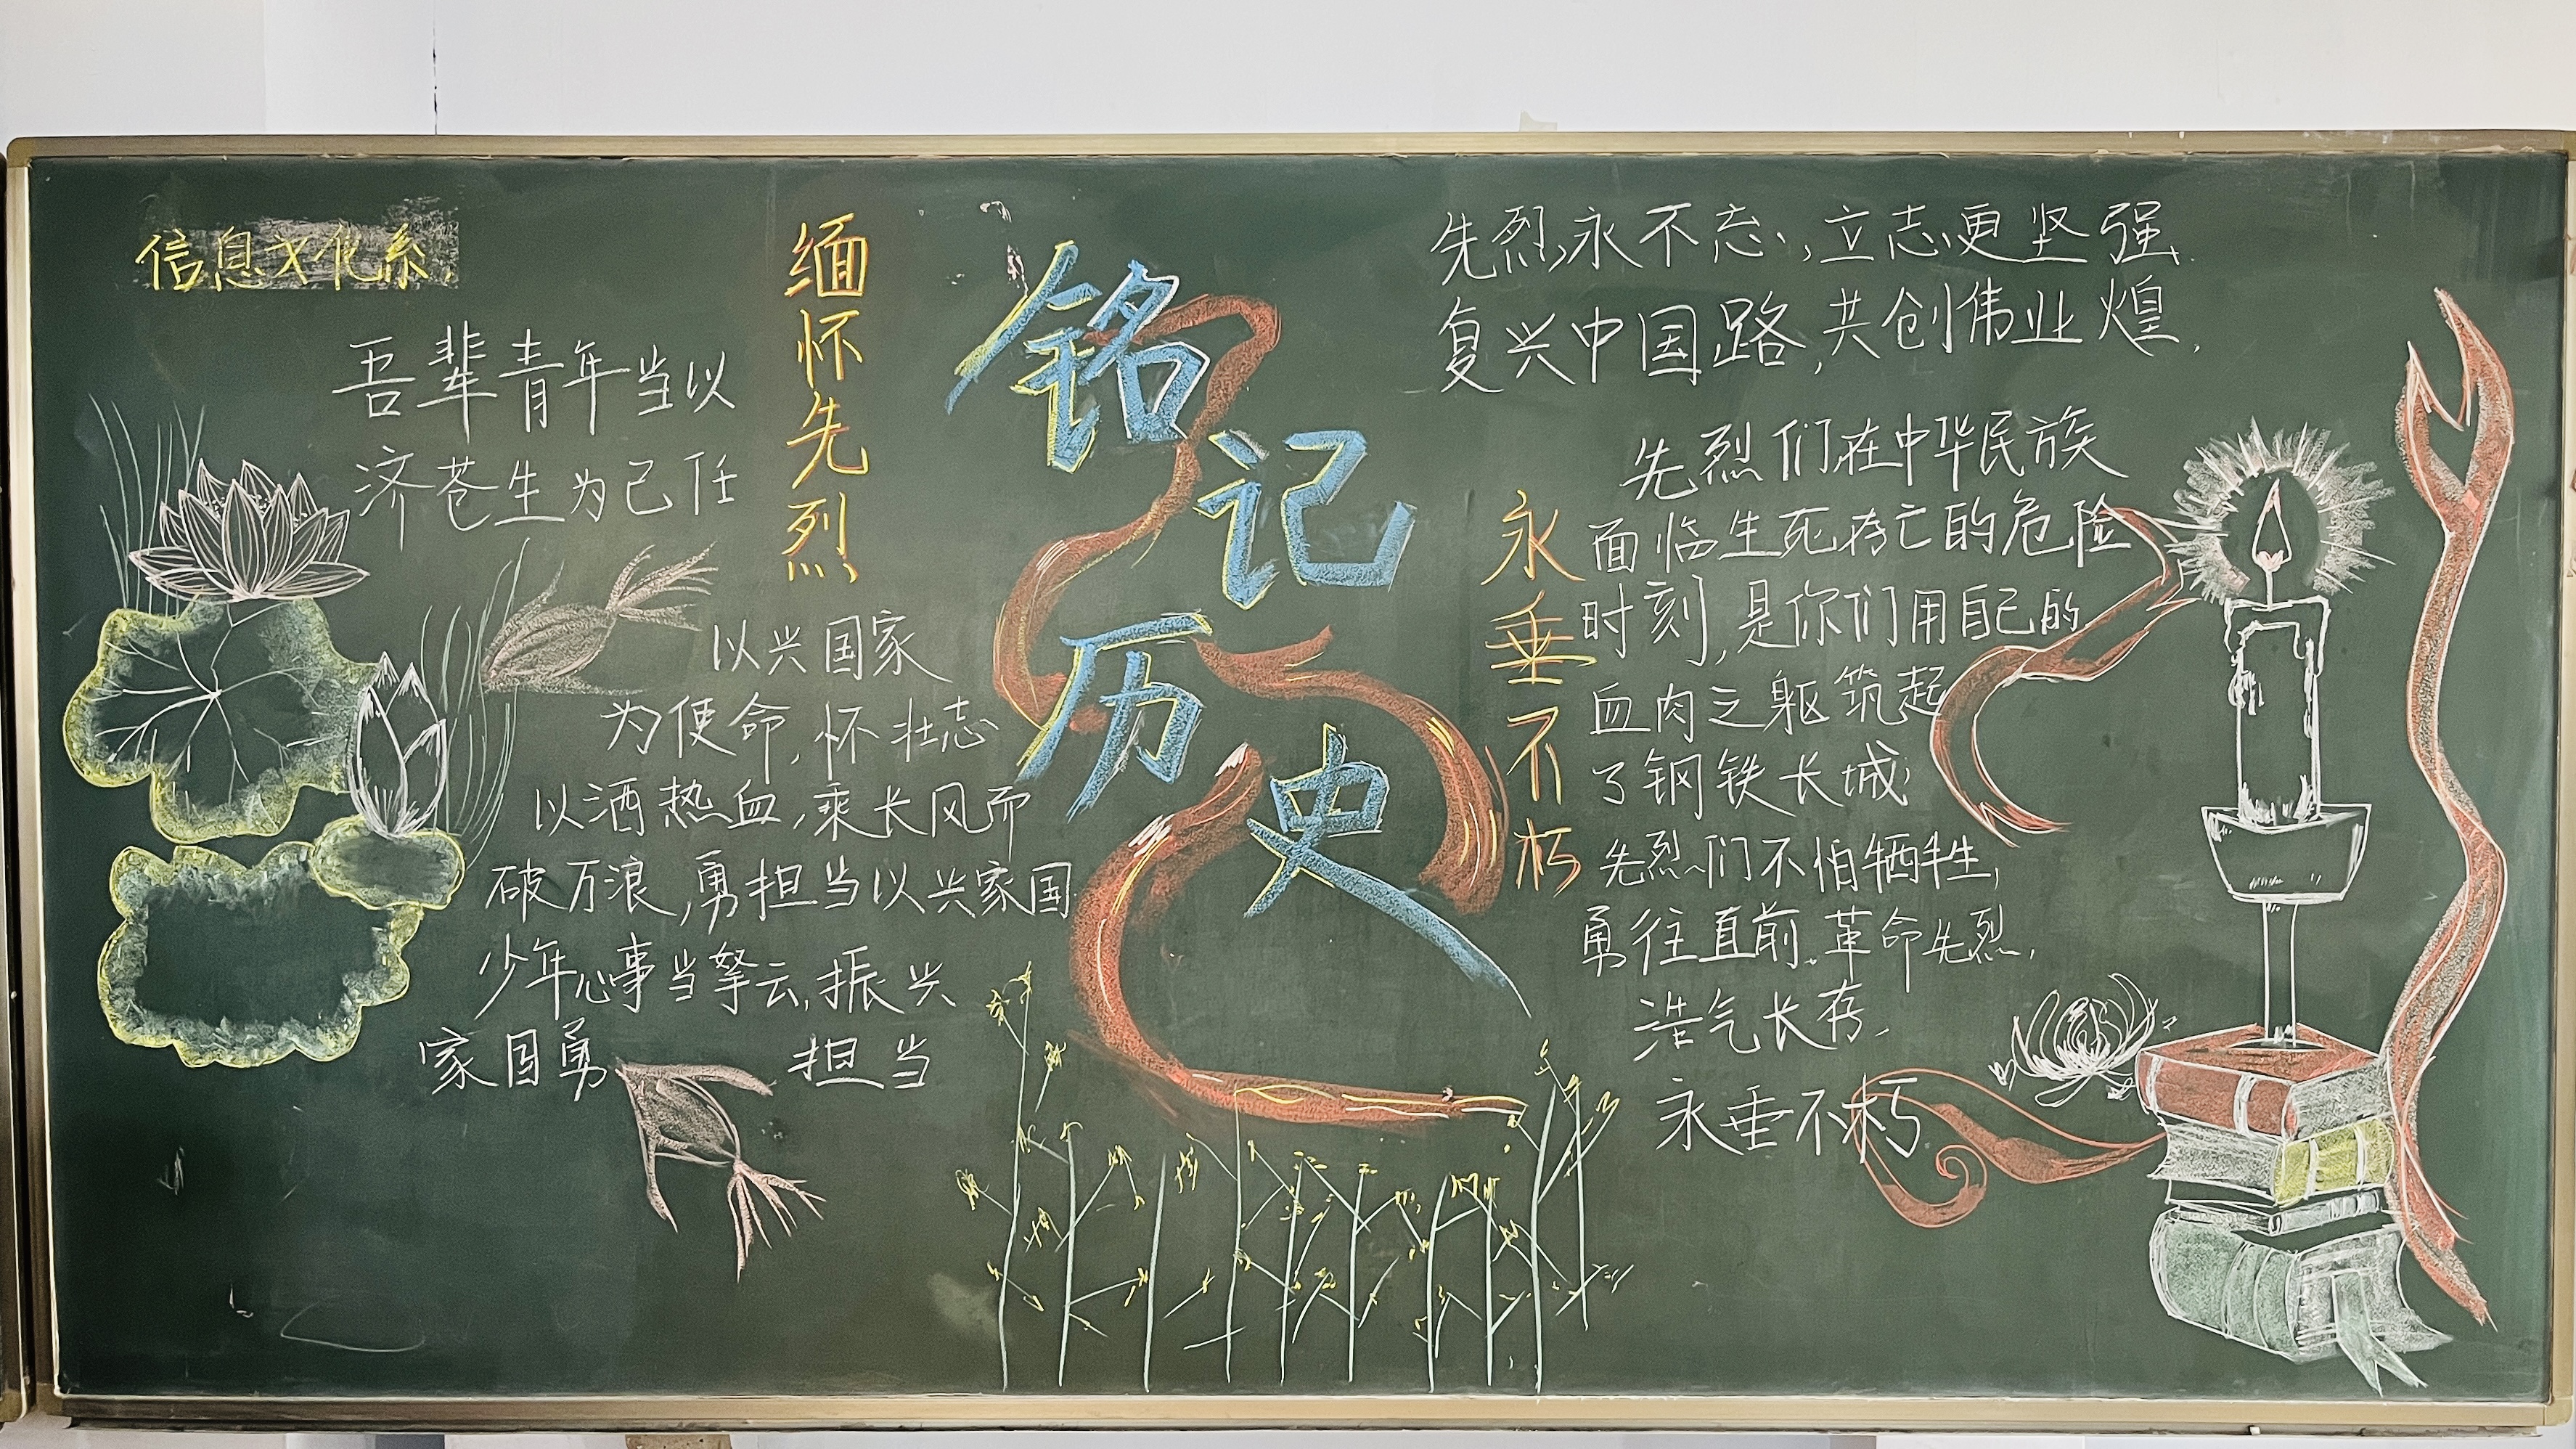 信息文化系
吾辈青年当以
济苍生为己任
以兴国家
为使命,怀壮志
以洒热血,乘长风而
破万浪,勇担当以兴家国
少年心事当拏云,振兴
家国勇 担当
缅怀先烈
铭记
历史
永垂不朽
先烈永不忘,立志更坚强
复兴中国路,共创伟业煌,
先烈们在中华民族
面临生死存亡的危险
时刻,是你们用自己的
血肉之躯筑起
了钢铁长城,
先烈们不怕牺牲,
勇往直前.革命先烈,
浩气长存,
永垂不朽